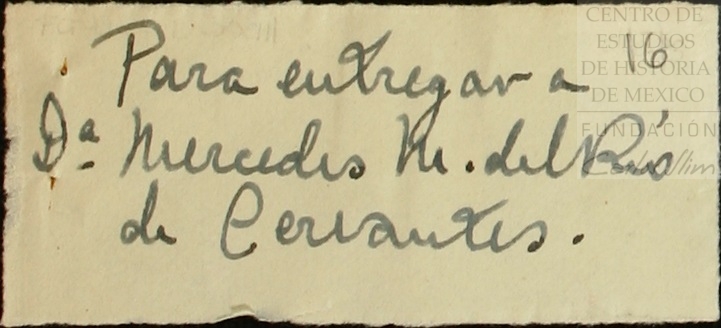 CENTRO DE
ESTUDIOS
DE HISTORIA
DE MEXICO
FUNDACIÓN
Carlos Slim
16
Para entregar a
Dª. Mercedes M. del Río
de Cervantes.